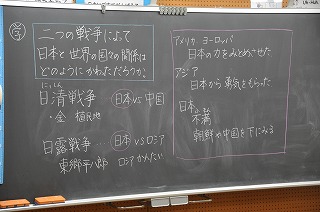 二つの戦争によって
日本と世界の国々の関係は
どのようにかわっただろうか。
にっしん
日清戦争 日本 vs 中国
・金 植民地
日露戦争 … 日本 vs ロシア
東郷平八郎 ロシアかんたい
アメリカ ヨーロッパ
日本の力をみとめさせた
アジア
日本から勇気をもらった
日本
ふまん
不満
朝鮮や中国を下にみる